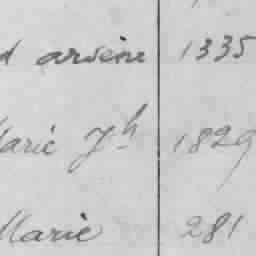 d arsène 1335
Marie Jh 1829
Marie 281